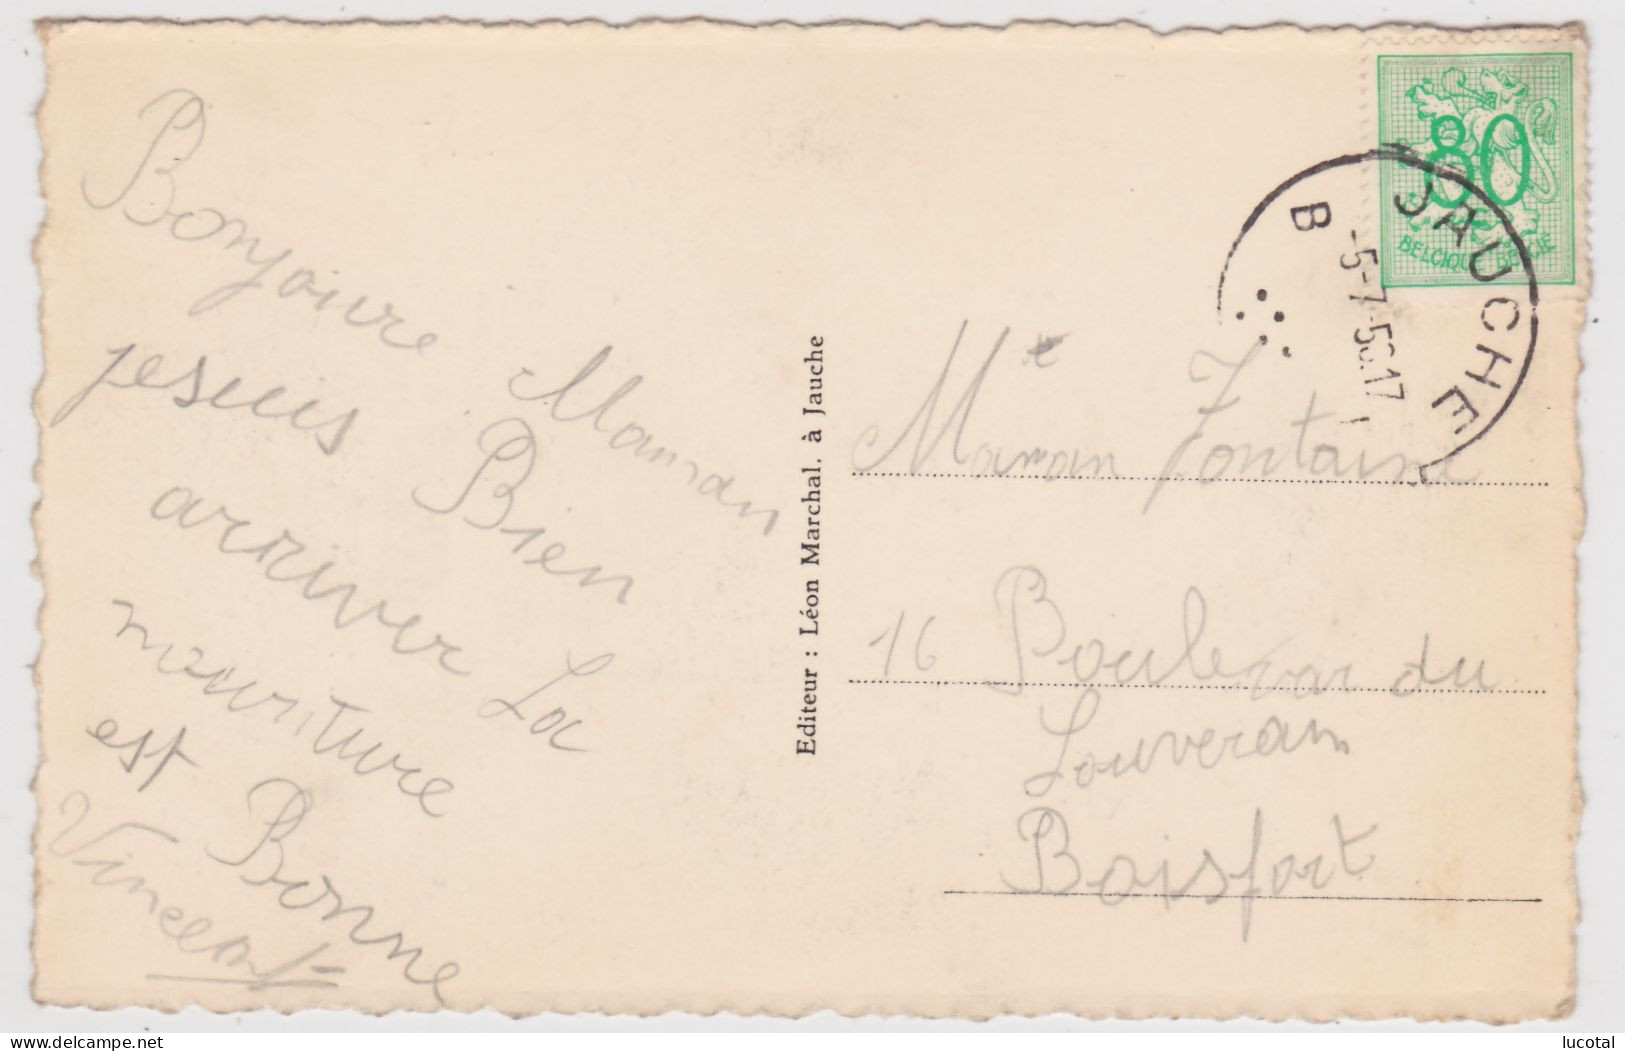 Bonjoure Maman
jesuis Bien
arriver La
nouriture
est Bonne
Vincent
Editeur : Léon Marchal, à Jauche
80
BELGIQUE BELGIË
JAUCHE
B
-5-7-5 .17
Me Maman Fontaine
16 Boulevar du
Souveram
Boisfort
lucotal
delcampe.net